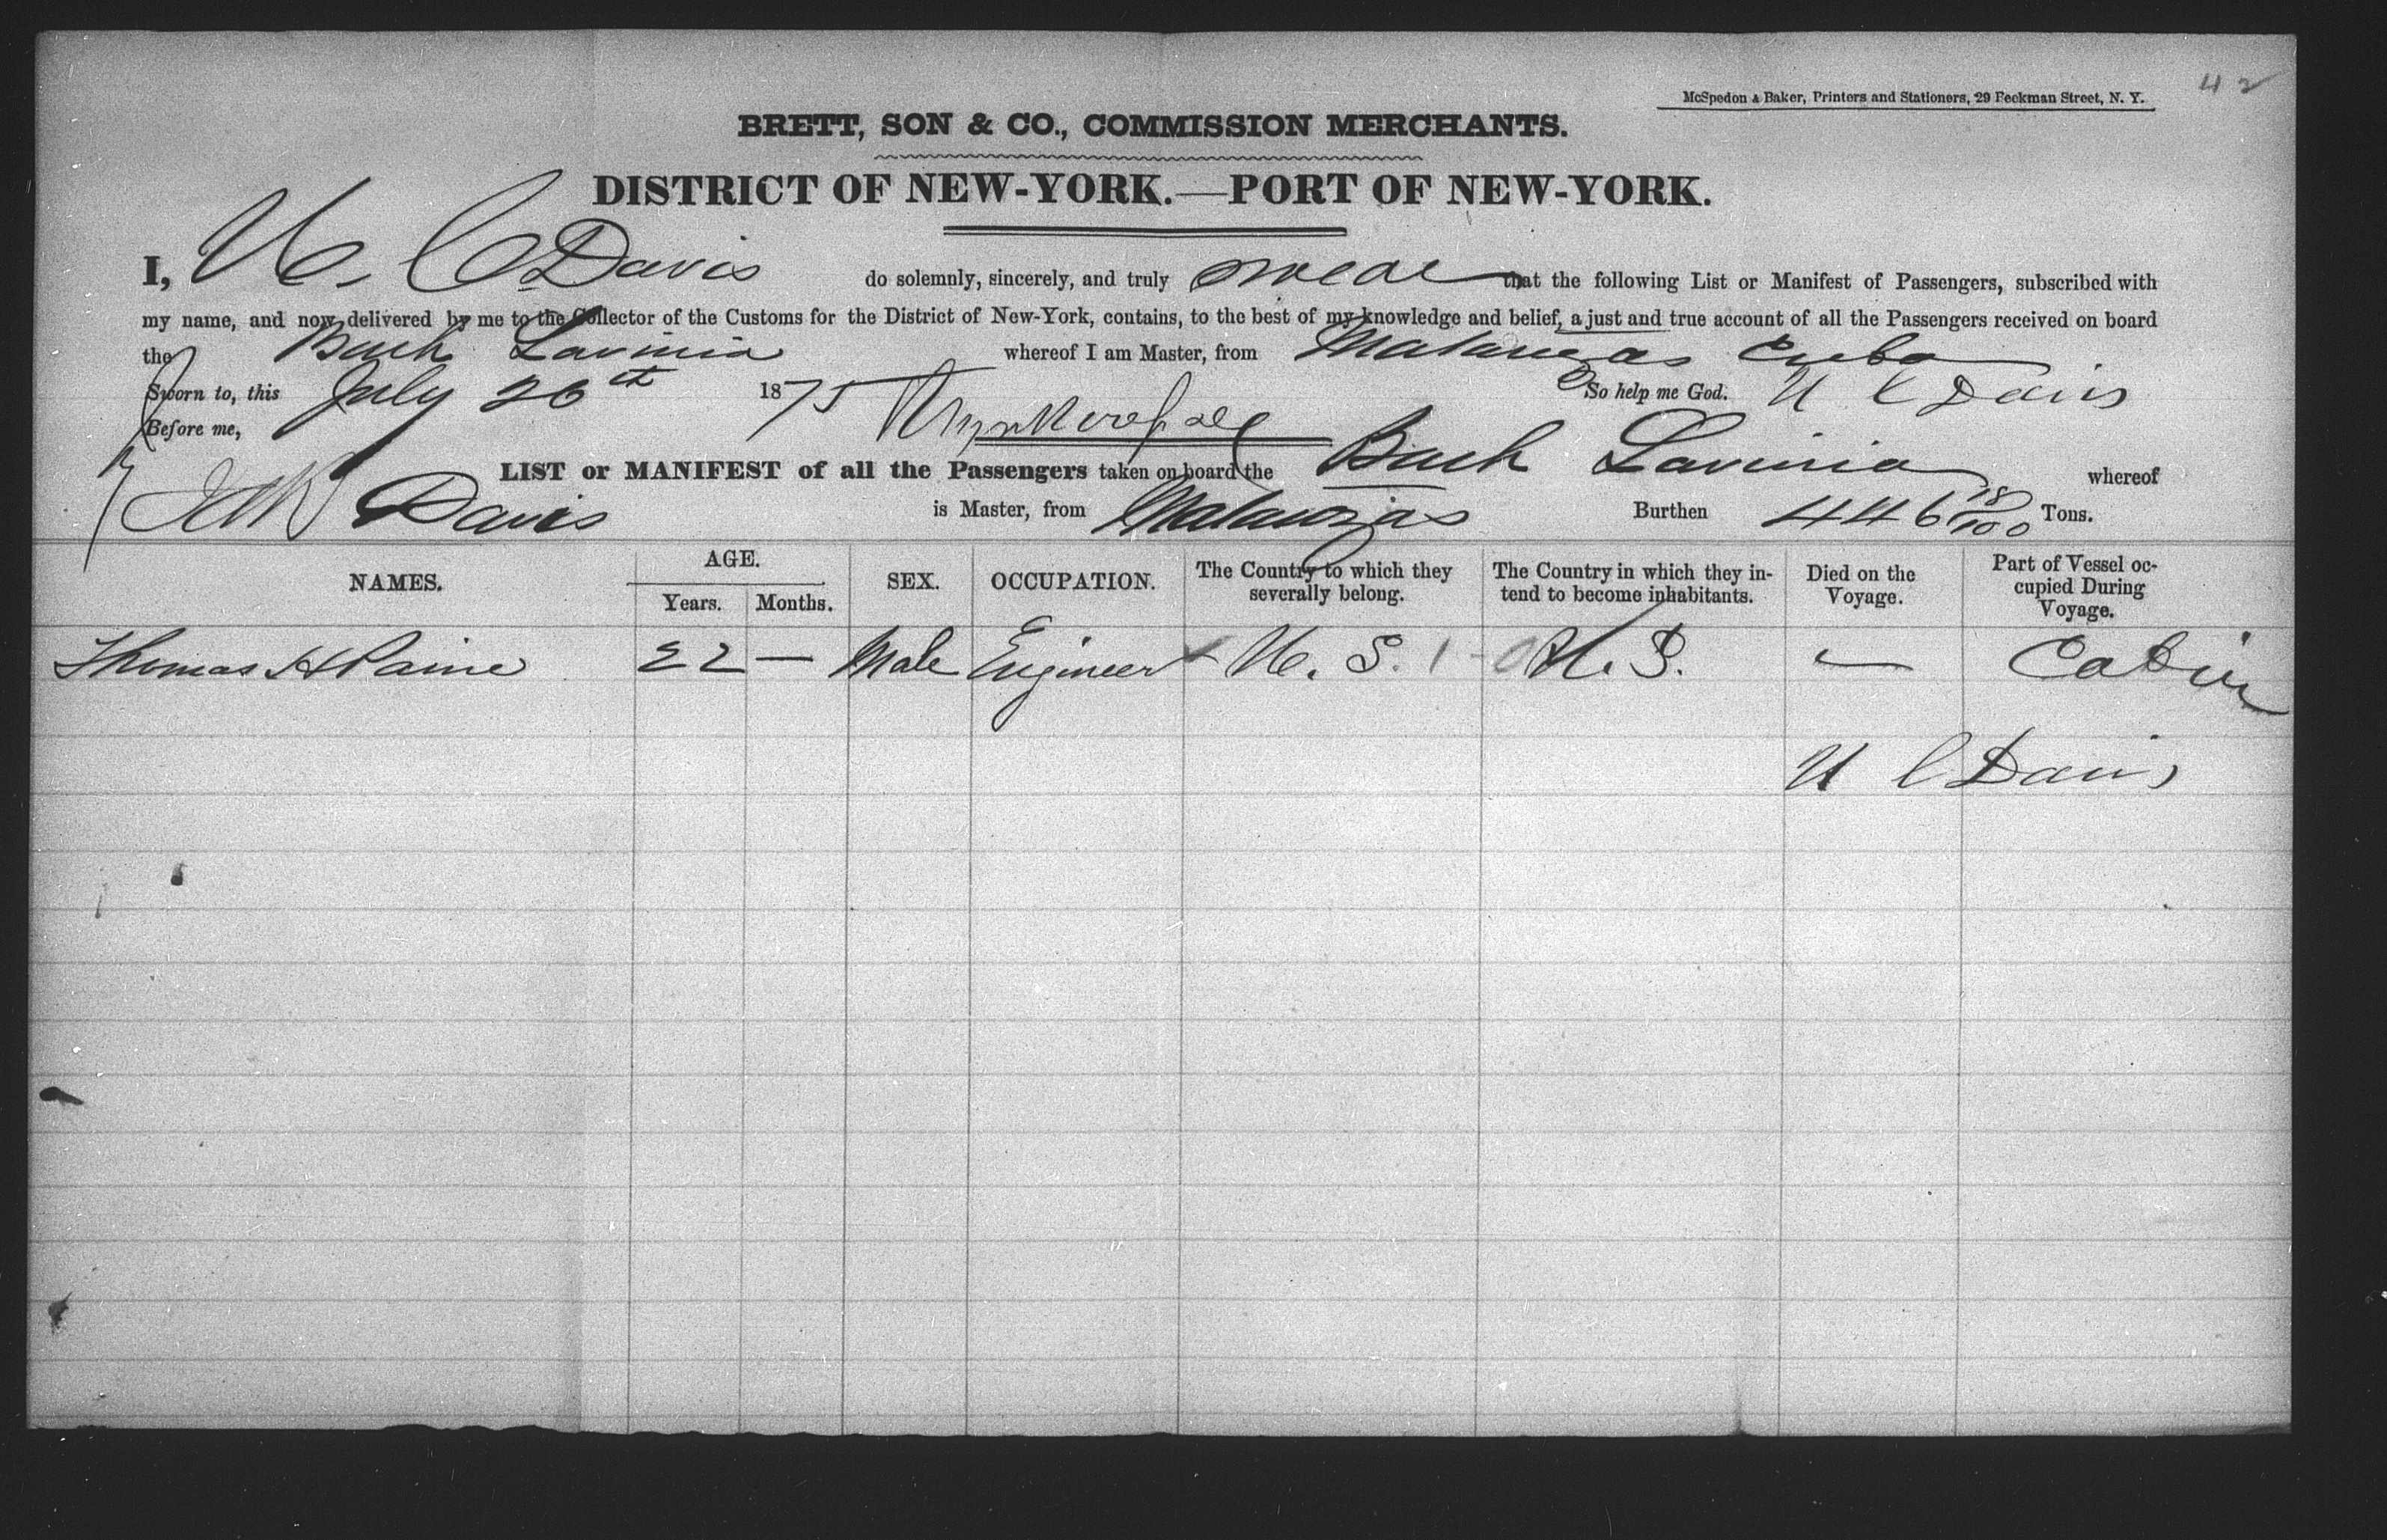 42
McSpedon & Baker, Printers and Stationers, 29 Beekman Street, N. Y.
BRETT, SON & CO., COMMISSION MERCHANTS.
DISTRICT OF NEW-YORK.—PORT OF NEW-YORK.
I, U. C Davis do solemnly, sincerely, and truly swear that the following List or Manifest of Passengers, subscribed with
my name, and now delivered by me to the Collector of the Customs for the District of New-York, contains, to the best of my knowledge and belief, a just and true account of all the Passengers received on board
the Bark Lavinia whereof I am Master, from Matanzas Cuba
Sworn to, this July 26th 1875 So help me God. U C Davis
Before me,
LIST or MANIFEST of all the Passengers taken on board the Bark Lavinia whereof
Davis is Master, from Matanzas Burthen 446 18/100 Tons.
NAMES. AGE. Years. Months. SEX. OCCUPATION. The Country to which they severally belong. The Country in which they intend to become inhabitants. Died on the Voyage. Part of Vessel occupied During Voyage.
Thomas H Paine 22 — Male Engineer U. S. 1 - 0 U. S. — Cabin
U C Davis